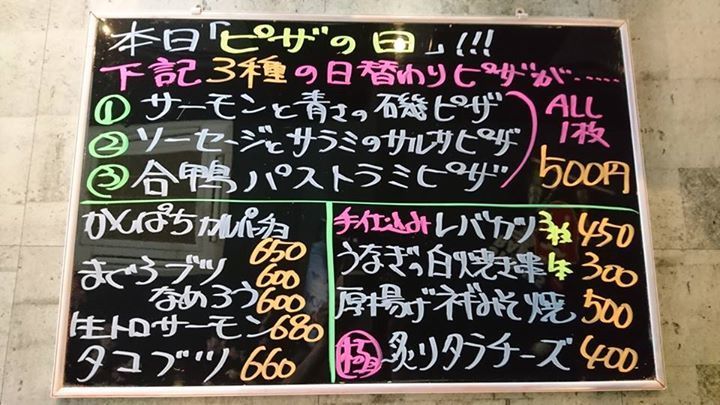 本日「ピザの日」!!!
下記3種の日替わりピザが......
① サーモンと青さの磯ピザ
② ソーセージとサラミのサルサピザ
③ 合鴨パストラミピザ
ALL
1枚
500円
かんぱちカルパッチョ
650
まぐろブツ 600
なめろう 600
生トロサーモン 680
タコブツ 660
手仕込み レバカツ 3枚 450
うなぎの白焼き串 1本 300
厚揚げネギみそ焼 500
極 炙りタラチーズ 400